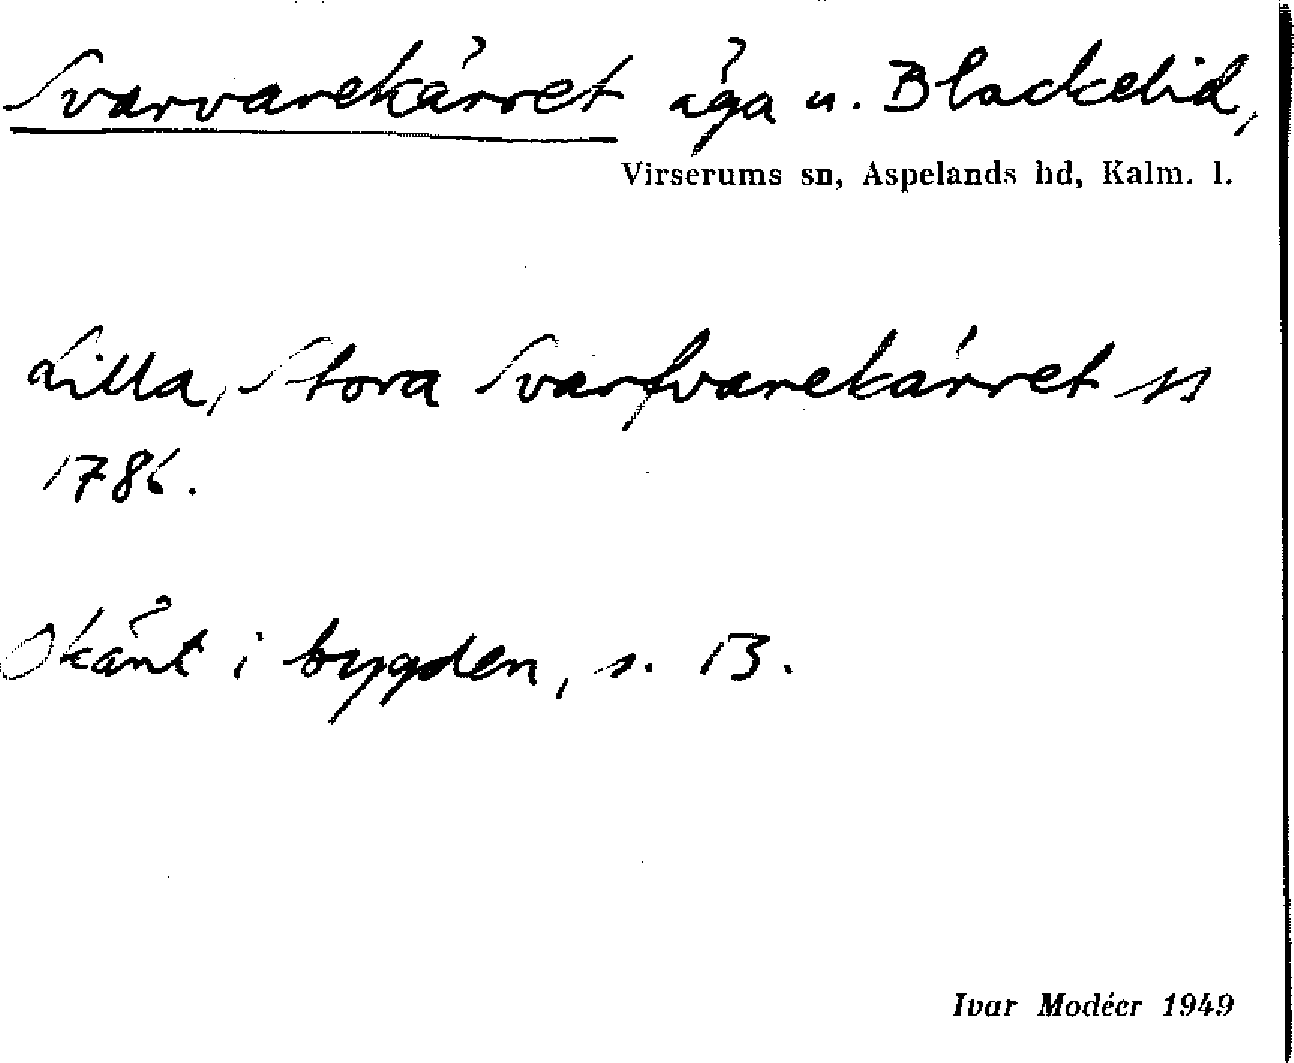 Svarvarekärret äga u. Blackelid,
Virserums sn, Aspelands hd, Kalm. l.
Lilla, Stora Svarfvarekärret ss
1786.
Okänt i bygden, s. B.
Ivar Modéer 1949